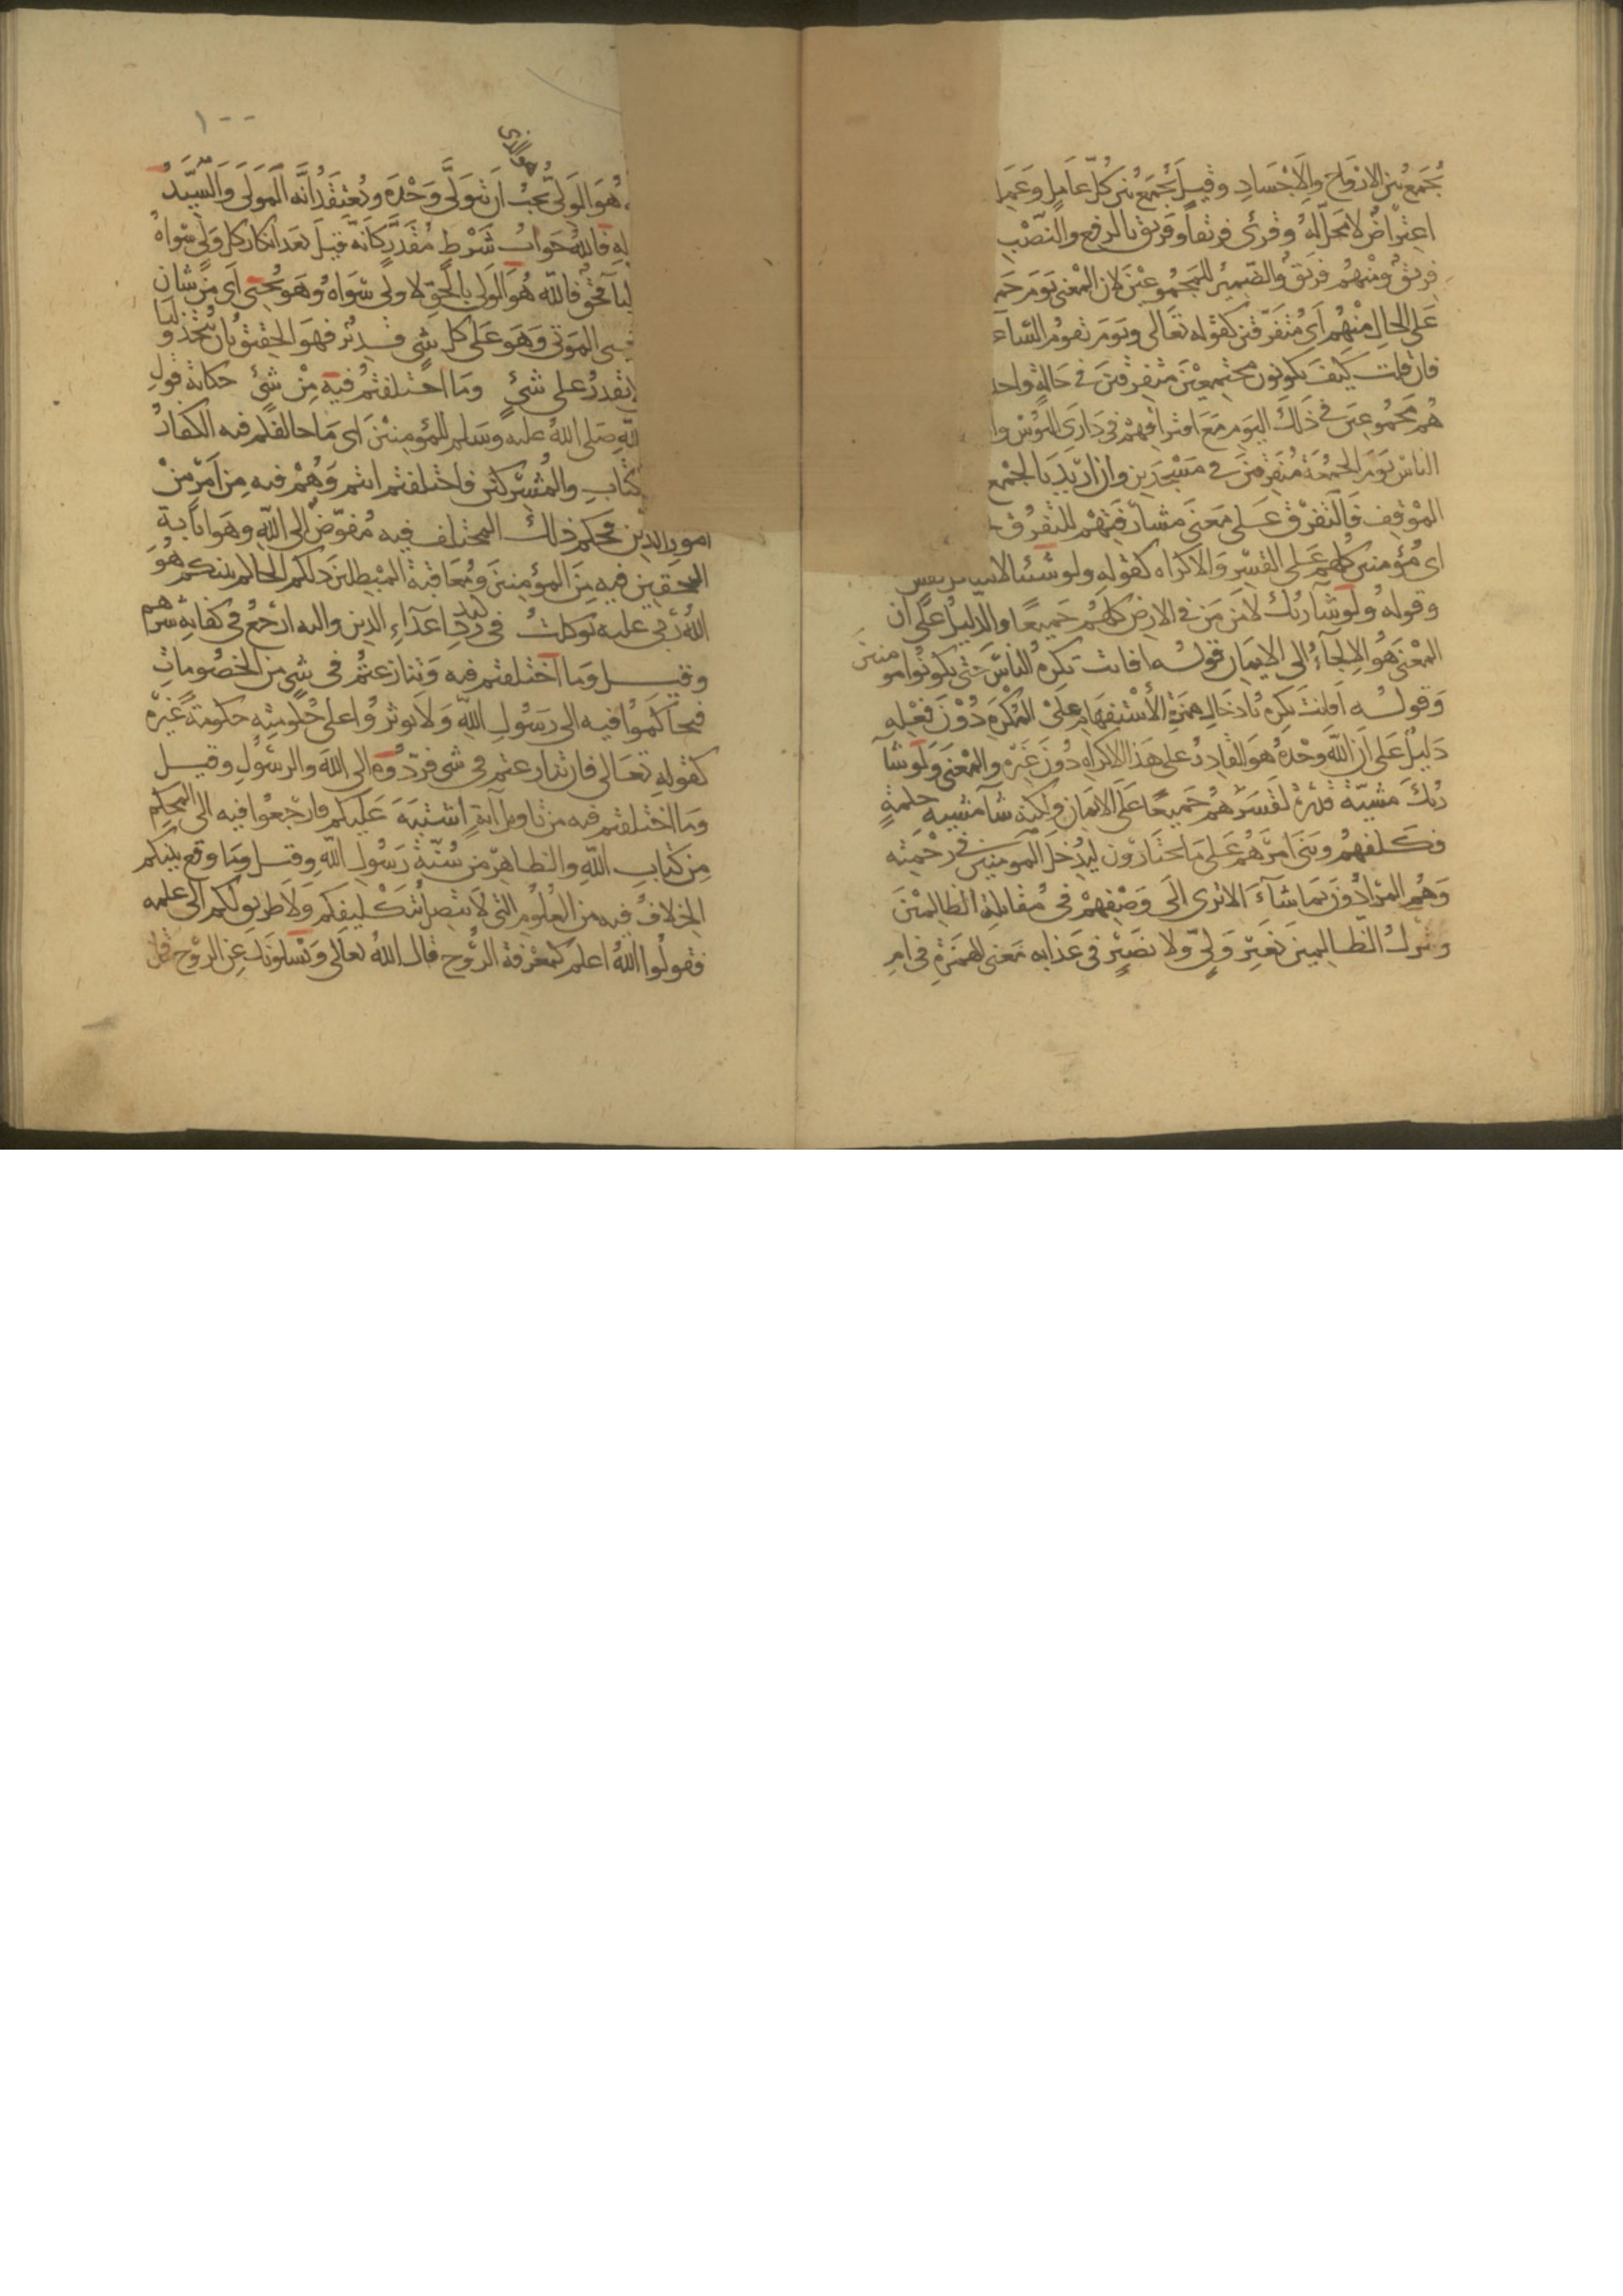 يجمع بين الارواح والاجساد وقيل يجمع بين كل عامل وعمله
اعتراض لا محل له وقرئ فريقا وفريق بالرفع والنصب
فريق ومنهم فريق والضمير للمجموعين لان المعنى يوم جمع
على الحال منهم اى متفرقين كقوله تعالى ويوم تقوم الساعـ
فان قلت كيف يكونون مجتمعين متفرقين في حالة واحد
هم مجموعين في ذلك اليوم مع افتراقهم في دارى البؤس وا
الناس يوم الجمعة متفرقين في مسجدين وان اريد بالجمع
الموقف فالتفرق على معنى مشارفتهم للتفرق
اى مؤمنين كلهم على القسر والاكراه كقوله ولو شئنا لاتينا كل نفس
وقوله ولو شا ربك لامن من في الارض كلهم جميعا والدليل على ان
المعنى هو الالجاء الى الايمان قوله افانت تكره الناس حتى يكونوا مومنين
وقوله افانت تكره بادخال همزة الاستفهام على المكره دون فعله
دليل على ان الله وحده هو القادر على هذا الاكراه دون غيره والمعنى ولو شآ
ربك مشية قدرة لقسرهم جميعا على الايمان ولكنه شآ مشية حكمة
فكلفهم وبنى امرهم على ما يختارون ليدخل المومنين في رحمته
وهم المرادون بمن شاء الا ترى الى وصفهم في مقابلة الظالمين
وترك الظالمين بغير ولى ولا نصير في عذابه معنى الهمزة في ام
١٠٠
هو الولى يجب ان يتولى وحده ويعتقد انه المولى والسيد
له فالله جواب شرط مقدر كانه قيل بعد انكار كل ولى سواه
ليا بحق فالله هو الولى بالحق لا ولى سواه وهو يحيى اى من شان
يحيى الموتى وهو على كل شى قدير فهو الحقيق بان يتخذ وليا
يقدر على شئ وما اختلفتم فيه من شئ حكاية قول
لله صلى الله عليه وسلم للمؤمنين اى ما خالفكم فيه الكفار
كتاب والمشركين فاختلفتم انتم وهم فيه من امر من
امور الدين فحكم ذلك المختلف فيه مفوض الى الله وهو اثابة
المحقين فيه من المؤمنين ومعاقبة المبطلين ذلكم الحاكم بينكم هو
الله ربى عليه توكلت فى رد كيد اعداء الدين واليه ارجع فى كفاية شرهم
وقيل وما اختلفتم فيه وتنازعتم فى شى من الخصومات
فتحاكموا فيه الى رسول الله ولا توثروا على حكومته حكومة غيره
كقوله تعالى فان تنازعتم فى شى فردوه الى الله والرسول وقيل
وما اختلفتم فيه من تاويل آية اشتبه عليكم فارجعوا فيه الى المحكم
من كتاب الله والظاهر من سنة رسول الله وقيل وما وقع بينكم
الخلاف فيه من العلوم التى لا تتصل بتكليفكم ولا طريق لكم الى علمه
فقولوا الله اعلم كمعرفة الروح قال الله تعالى ويسلونك عن الروح قل